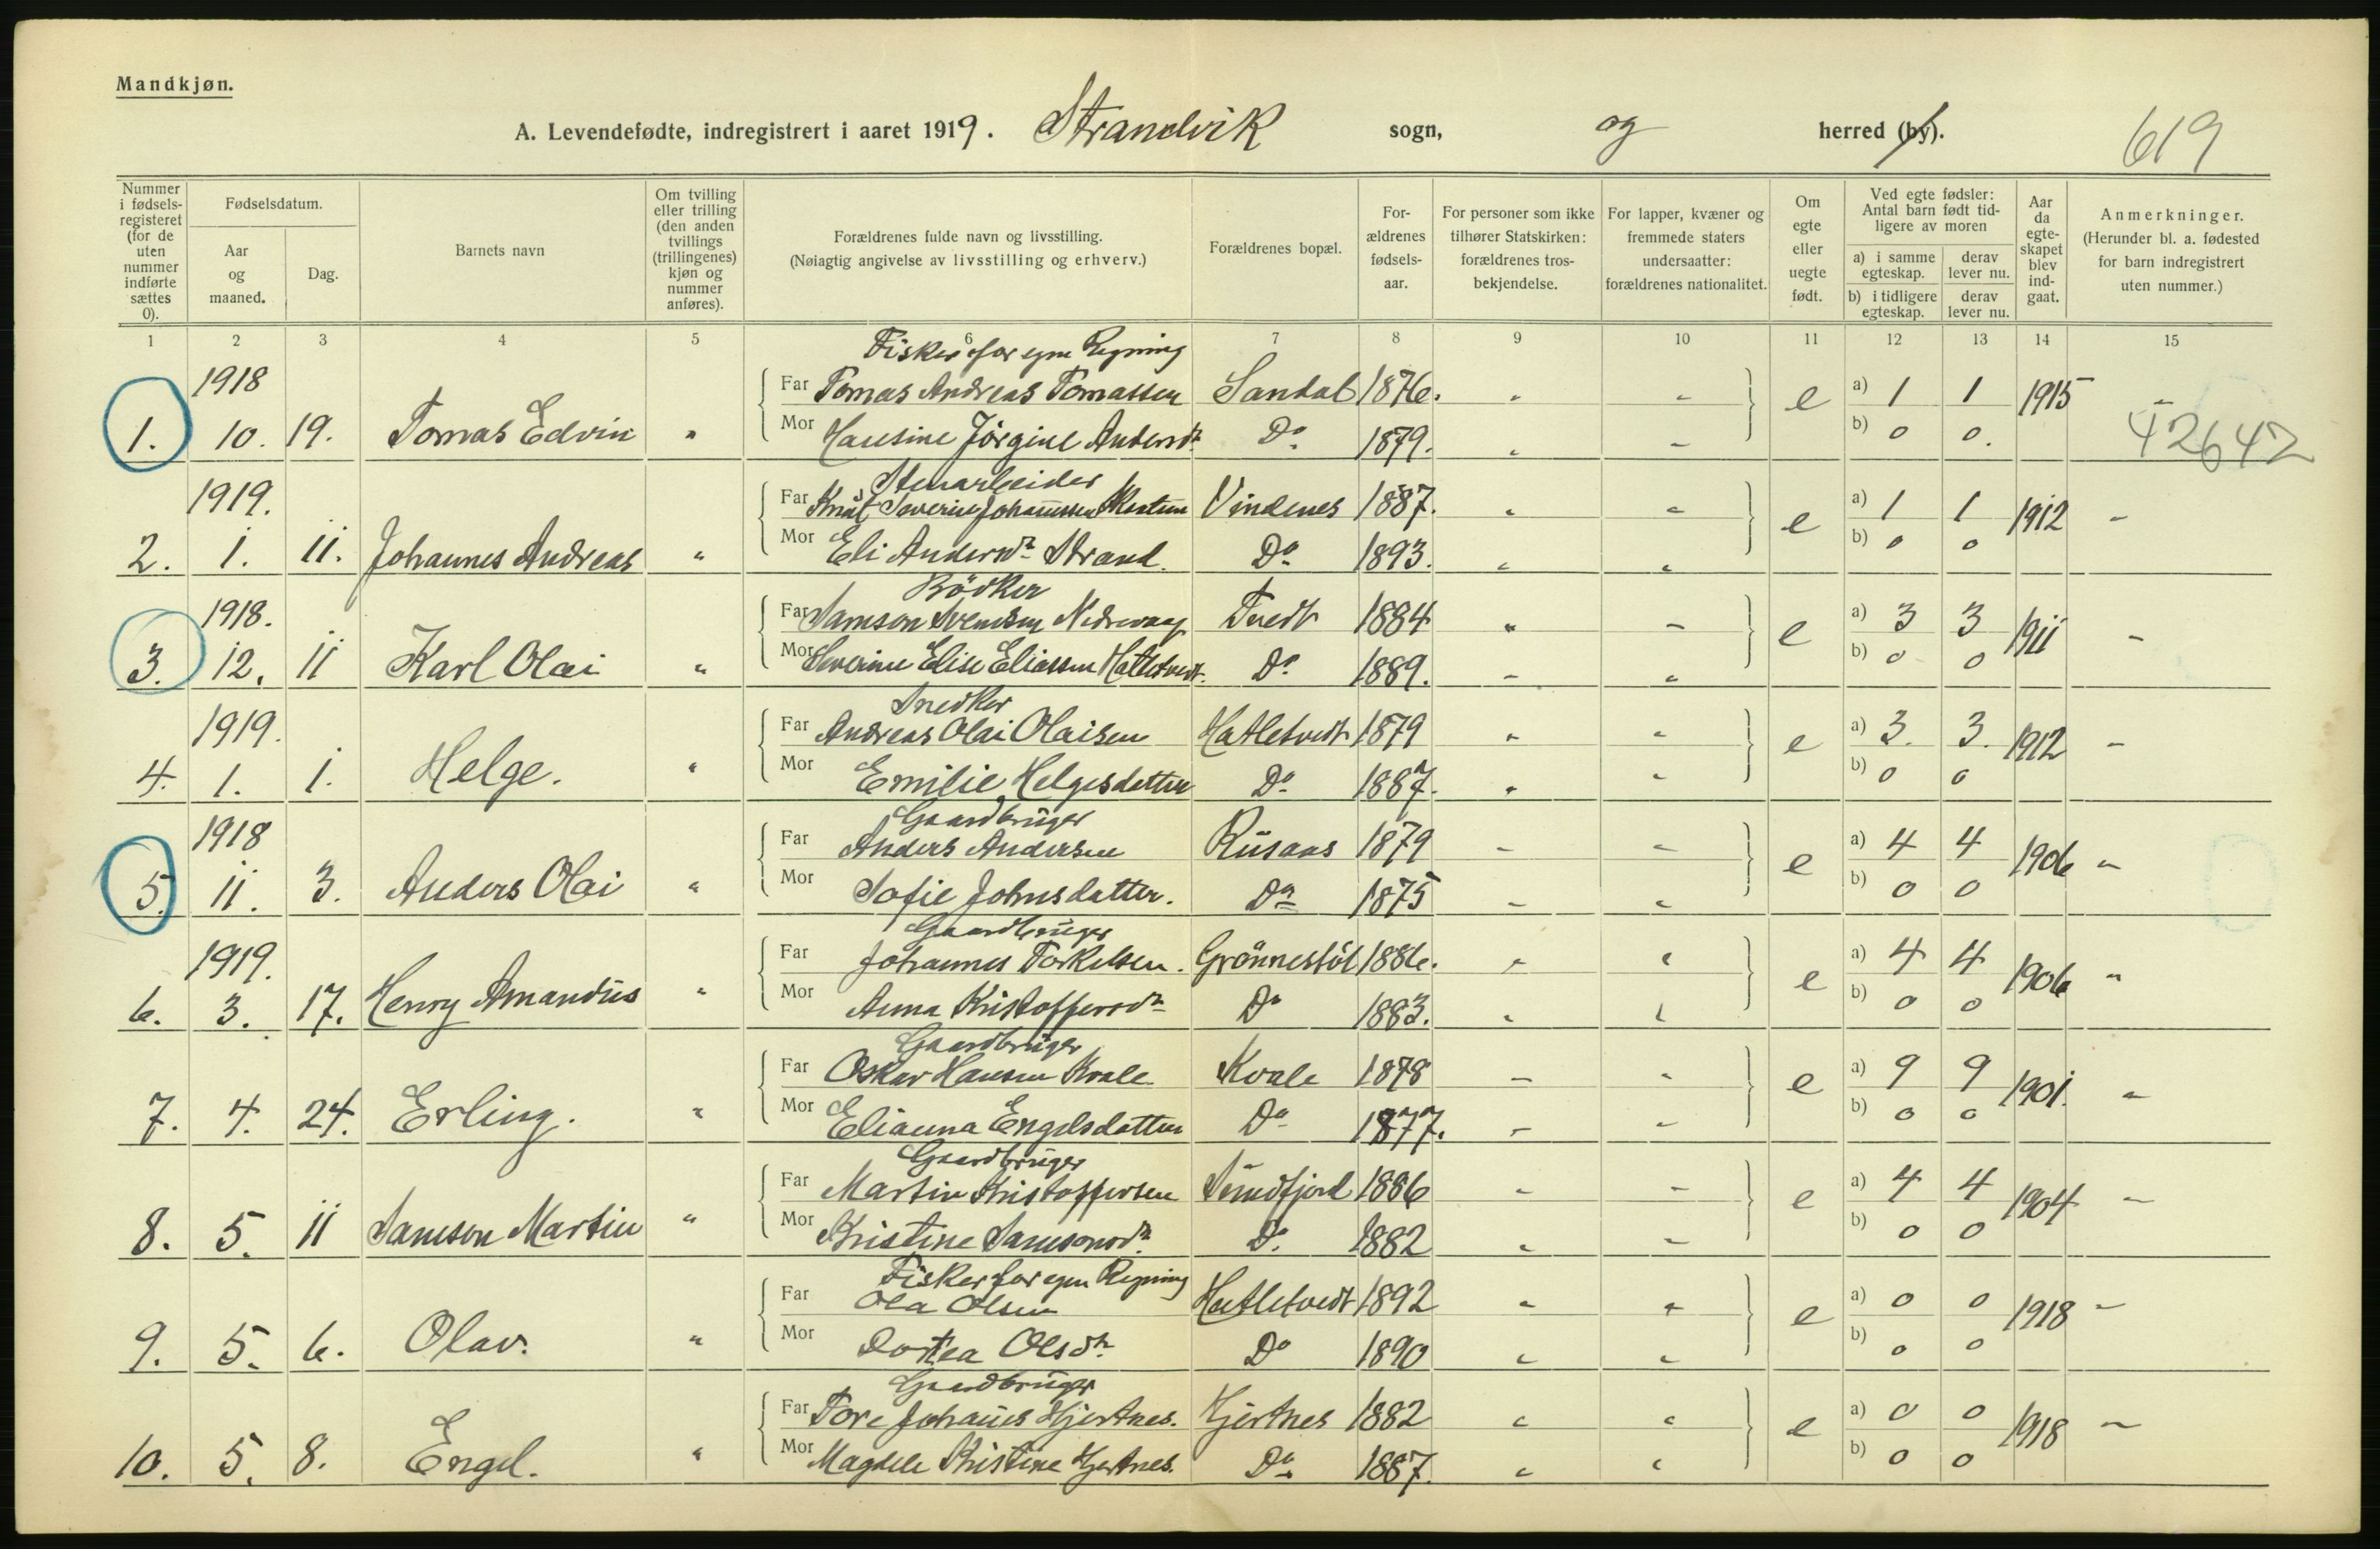 Mandkjøn.
A. Levendefødte, indregistrert i aaret 1919. Strandvik sogn, og herred (by). 619
Nummer i fødsels-registeret (for de uten nummer indførte sættes 0).
Fødselsdatum.
Aar og maaned.
Dag.
Barnets navn
Om tvilling eller trilling (den anden tvillings (trillingenes) kjøn og nummer anføres).
Forældrenes fulde navn og livsstilling.
(Nøiagtig angivelse av livsstilling og erhverv.)
Forældrenes bopæl.
For-ældrenes fødsels-aar.
For personer som ikke tilhører Statskirken: forældrenes tros-bekjendelse.
For lapper, kvæner og fremmede staters undersaatter: forældrenes nationalitet.
Om egte eller uegte født.
Ved egte fødsler: Antal barn født tid-ligere av moren
a) i samme egteskap. derav lever nu.
b) i tidligere egteskap. derav lever nu.
Aar da egte-skapet blev ind-gaat.
Anmerkninger.
(Herunder bl. a. fødested for barn indregistrert uten nummer.)
1 2 3 4 5 6 7 8 9 10 11 12 13 14 15
Fisker for egen Regning
1918 Far Tomas Andreas Tomassen Sandal 1876. " " e a) 1 1 1915 "
1. 10. 19. Tomas Edvin " Mor Hansine Jörgine Andersdr Do 1879. " " b) 0 0. 42642
Stenarbeider
1919. Far Knut Severin Johannessen Vindenes 1887. " " e a) 1 1 1912 "
2. 1. 11. Johannes Andreas " Mor Eli Andersdr Strand. Do 1893. " " b) 0 0
Bödker
1918. Far Samson Svendsen Nedrevaag Tvedt 1884 " " e a) 3 3 1911 "
3. 12. 11 Karl Olai " Mor Severine Elise Eliassen Hatletvedt. Do 1889. " " b) 0 0
Snedker
1919. Far Andreas Olai Olaisen Hatletvedt 1879 " " e a) 3. 3. 1912 "
4. 1. 1. Helge. " Mor Emilie Helgesdatter Do 1887. " " b) 0 0
Gaardbruger
1918 Far Anders Andersen Rusaas 1879 " " e a) 4 4 1906 "
5. 11. 3. Anders Olai " Mor Sofie Johnsdatter. Do 1875 " " b) 0 0
Gaardbruger
1919. Far Johannes Torkelsen. Grönnestöl 1886. " " e a) 4 4 1906 "
6. 3. 17. Henry Amandus " Mor Anna Kristoffersdr Do 1883. " " b) 0 0
Gaardbruger
Far Oskar Hansen Kvale Kvale 1878 " " e a) 9 9 1901. "
7. 4. 24. Erling. " Mor Elianna Engelsdatter Do 1877. " " b) 0 0
Gaardbruger
Far Martin Kristoffersen Sundfjord 1886 " " e a) 4 4 1904 "
8. 5. 11 Samson Martin " Mor Kristine Samsonsdr. Do. 1882 " " b) 0 0
Fisker for egen Regning
Far Ola Olsen Hatletvedt 1892 " " e a) 0 0 1918 "
9. 5. 6. Olav. " Mor Dortea Olsdr. Do 1890 " " b) 0 0
Gaardbruger
Far Tore Johannes Hjertnes. Hjertnes 1882 " " e a) 0 0 1918 "
10. 5. 8. Engel. " Mor Magdele Kristine Hjertnes. Do 1887. " " b) 0 0